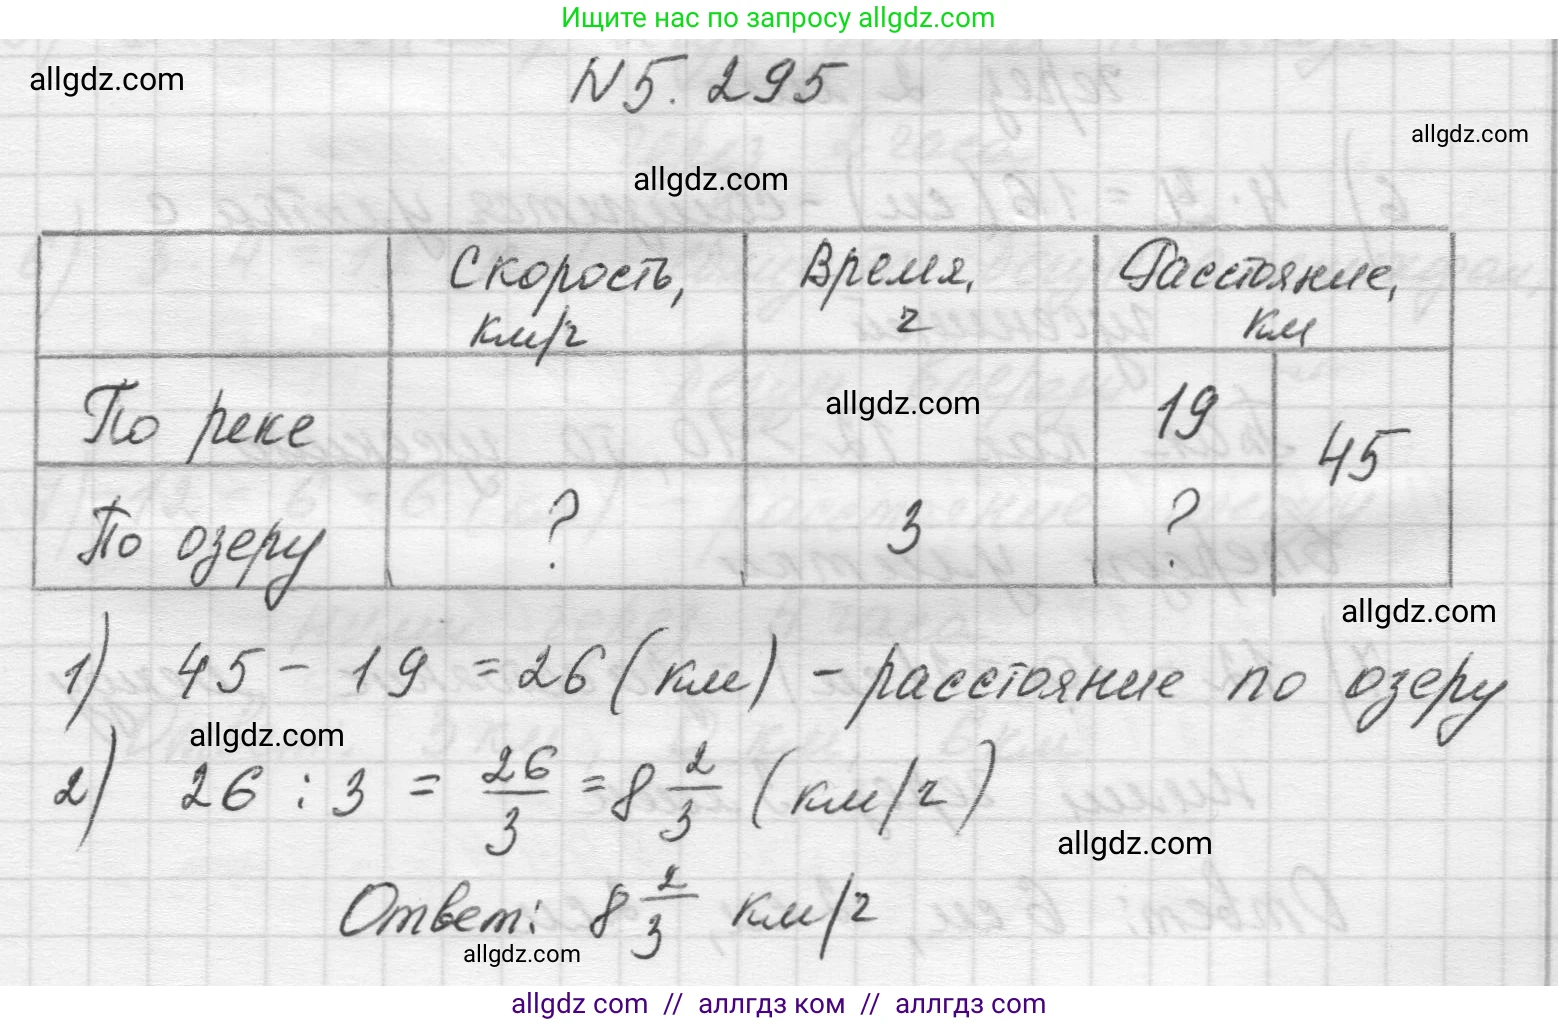 Ищите нас по запросу allgdz.com
allgdz.com
N 5. 295
allgdz.com
allgdz.com
Скорость, км/ч
Время, ч
Расстояние, км
По реке
allgdz.com
19
45
По озеру
?
3
?
allgdz.com
1) 45 - 19 = 26 (км) - расстояние по озеру
allgdz.com
2) 26 : 3 = 26/3 = 8 2/3 (км/ч)
allgdz.com
Ответ: 8 2/3 км/ч
allgdz.com
allgdz com // аллгдз ком // аллгдз com